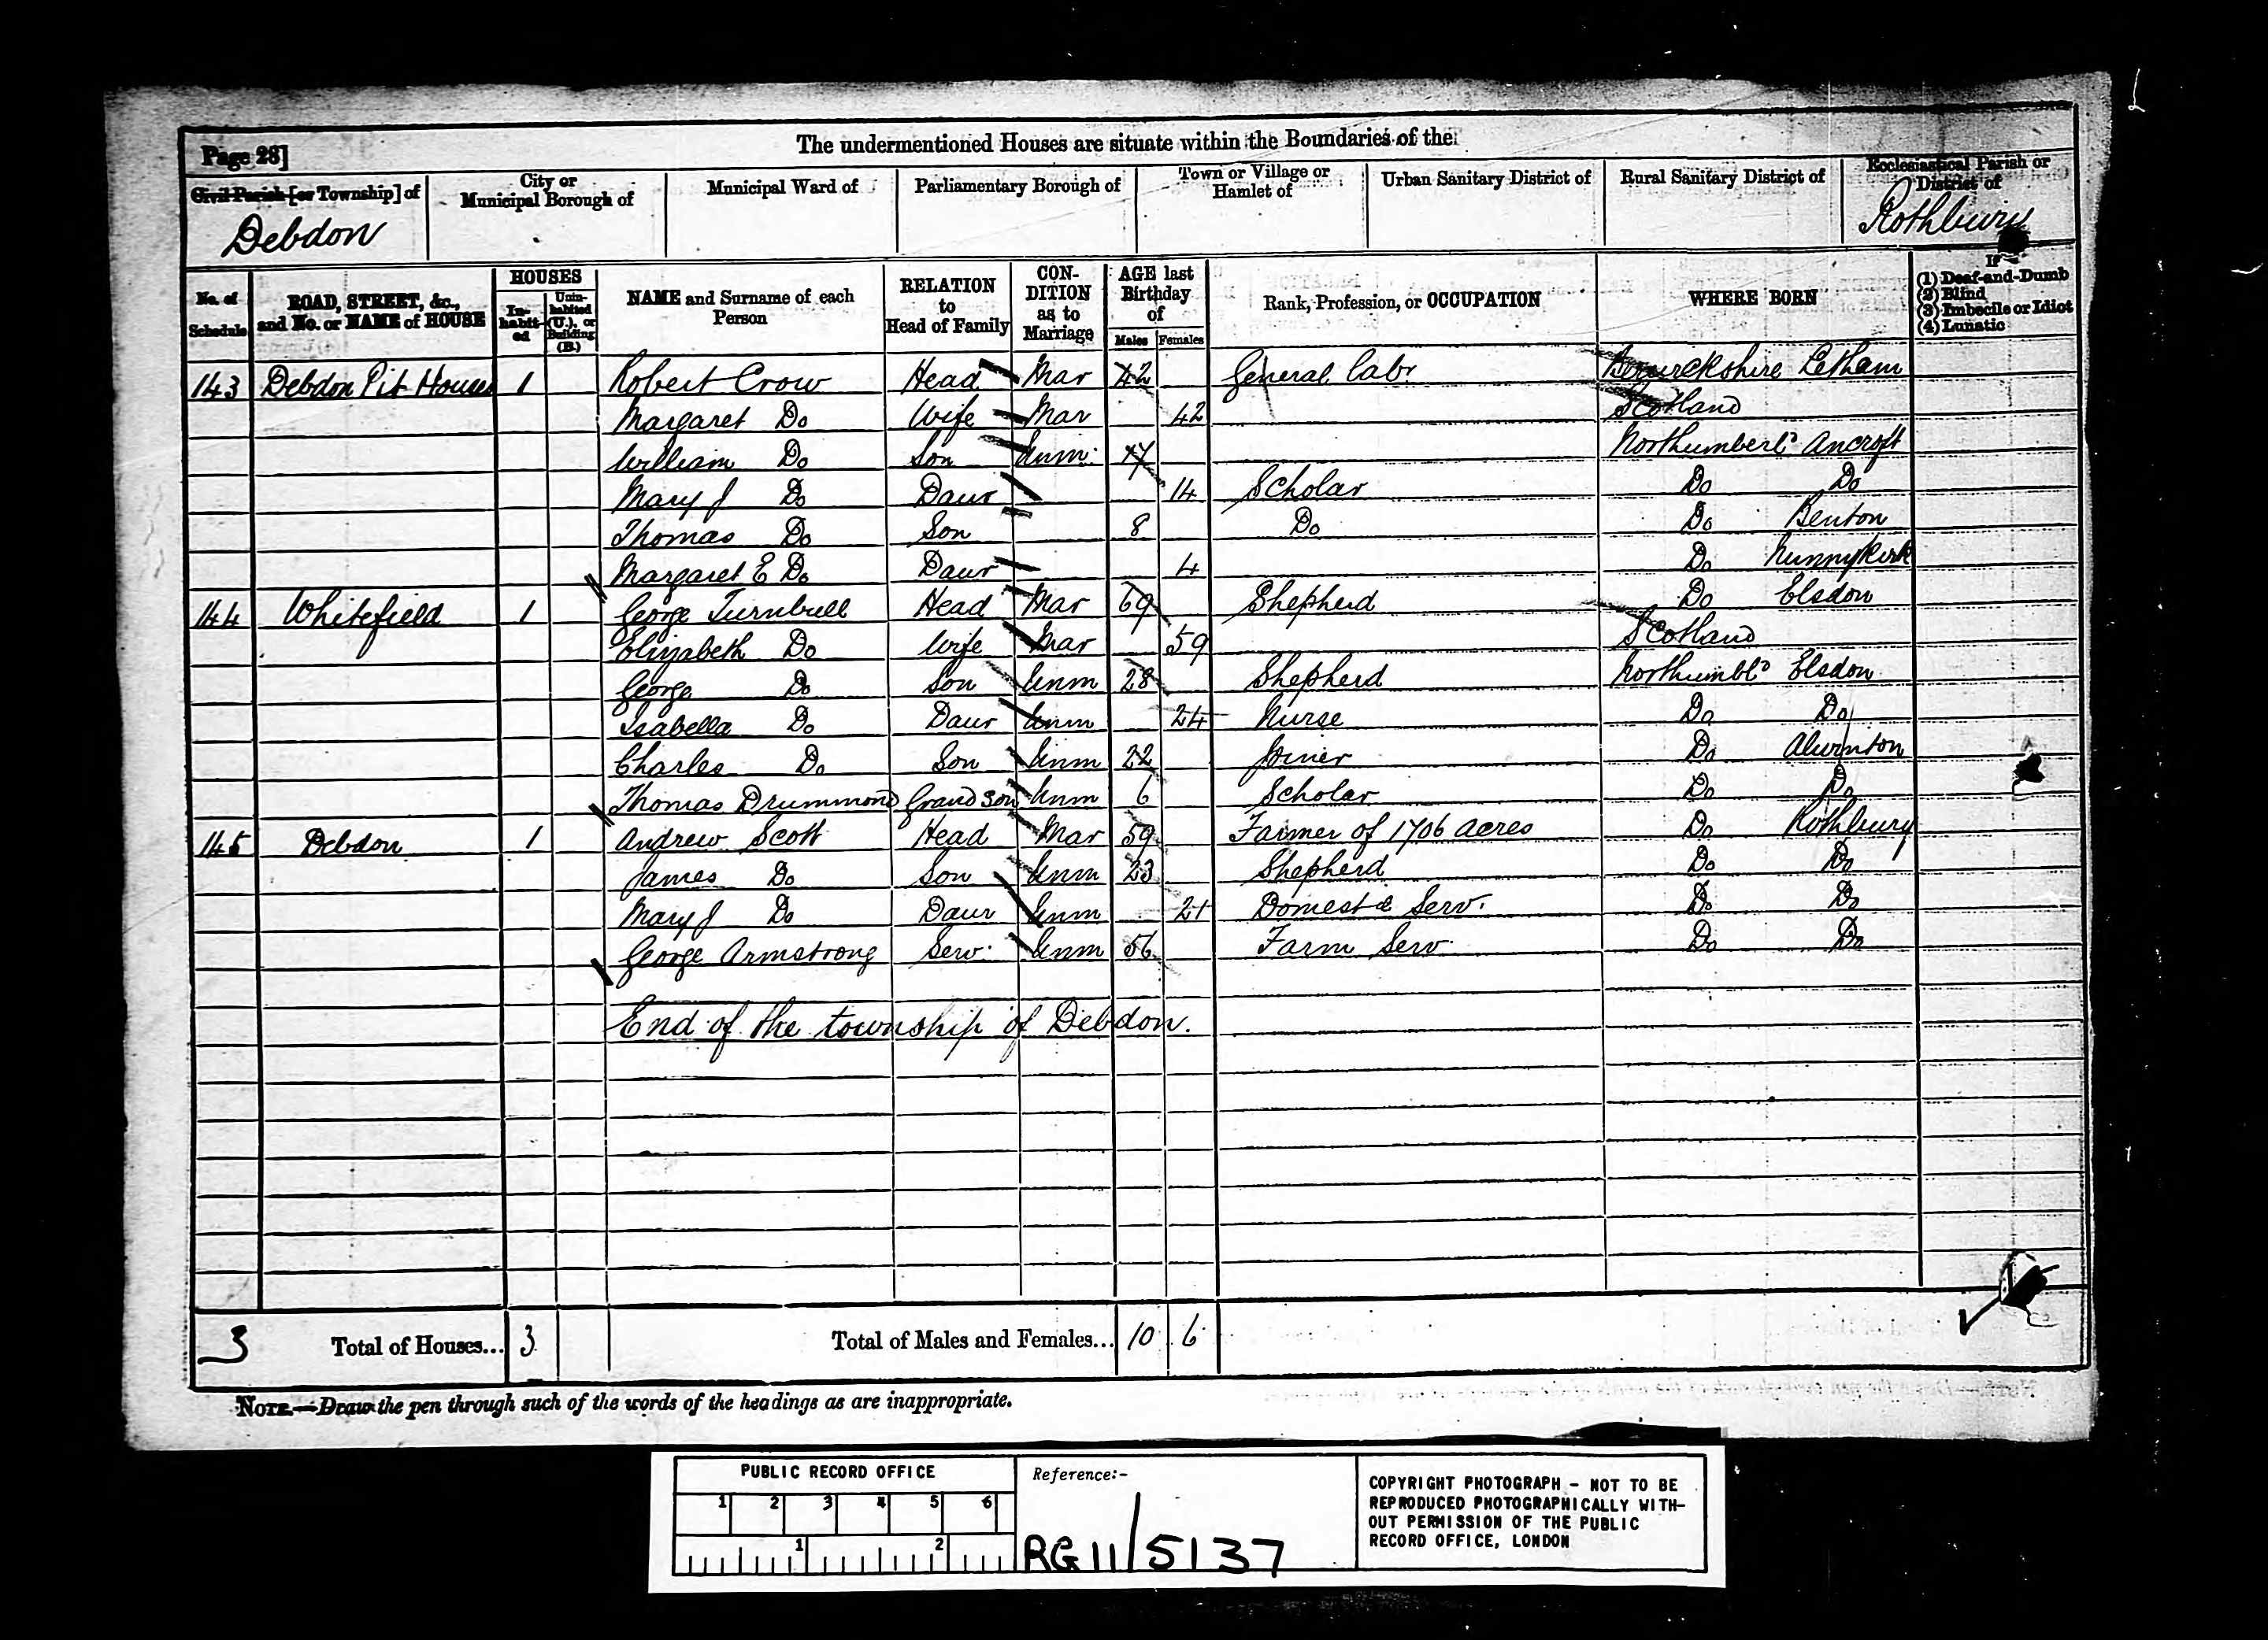 The undermentioned Houses are situate within the Boundaries of the
Page 28]
Civil Parish [or Township] of
Debdon
City or Municipal Borough of
Municipal Ward of
Parliamentary Borough of
Town or Village or Hamlet of
Urban Sanitary District of
Rural Sanitary District of
Ecclesiastical Parish or District of
Rothbury
No. of Schedule
ROAD, STREET, &c., and No. or NAME of HOUSE
HOUSES
In-habit-ed
Unin-habited (U.), or Building (B.)
NAME and Surname of each Person
RELATION to Head of Family
CON-DITION as to Marriage
AGE last Birthday of
Males Females
Rank, Profession, or OCCUPATION
WHERE BORN
If
(1) Deaf-and-Dumb
(2) Blind
(3) Imbecile or Idiot
(4) Lunatic
143 Debdon Pit Houses 1 Robert Crow Head Mar 42 General Labr Berwickshire Letham
Margaret Do Wife Mar 42 Scotland
William Do Son Unm Northumberld Ancroft
Mary J Do Daur 14 Scholar Do Do
Thomas Do Son 8 Do Do Benton
Margaret E Do Daur 4 Do Nunnykirk
144 Whitefield 1 George Turnbull Head Mar 69 Shepherd Do Elsdon
Elizabeth Do Wife Mar 59 Scotland
George Do Son Unm 28 Shepherd Northumbld Elsdon
Isabella Do Daur Unm 24 Nurse Do Do
Charles Do Son Unm 22 Joiner Do Alwinton
Thomas Drummond Grand son Unm 6 Scholar Do Do
145 Debdon 1 Andrew Scott Head Mar 59 Farmer of 1706 acres Do Rothbury
James Do Son Unm 23 Shepherd Do Do
Mary J Do Daur Unm 21 Domestic Serv. Do Do
George Armstrong Serv. Unm 56 Farm Serv. Do Do
End of the township of Debdon.
3 Total of Houses... 3 Total of Males and Females... 10 6
NOTE.—Draw the pen through such of the words of the headings as are inappropriate.
PUBLIC RECORD OFFICE
1 2 3 4 5 6
1 2
Reference:-
RG 11/5137
COPYRIGHT PHOTOGRAPH – NOT TO BE
REPRODUCED PHOTOGRAPHICALLY WITH-
OUT PERMISSION OF THE PUBLIC
RECORD OFFICE, LONDON